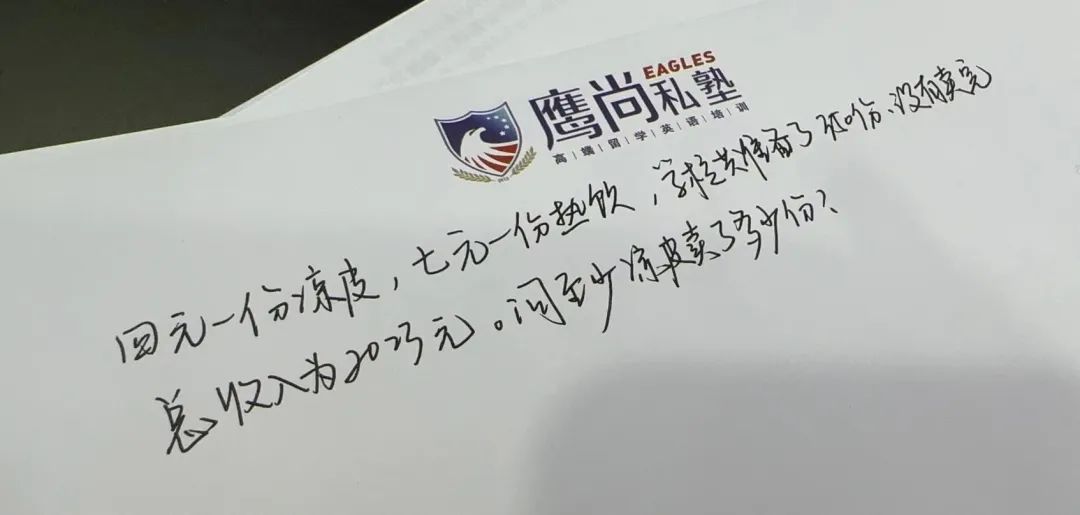 鹰尚私塾
EAGLES
高端留学英语培训
四元一份凉皮，七元一份热饮，学校共准备了350份、没有卖完
总收入为2023元。问至少凉皮卖了多少份？